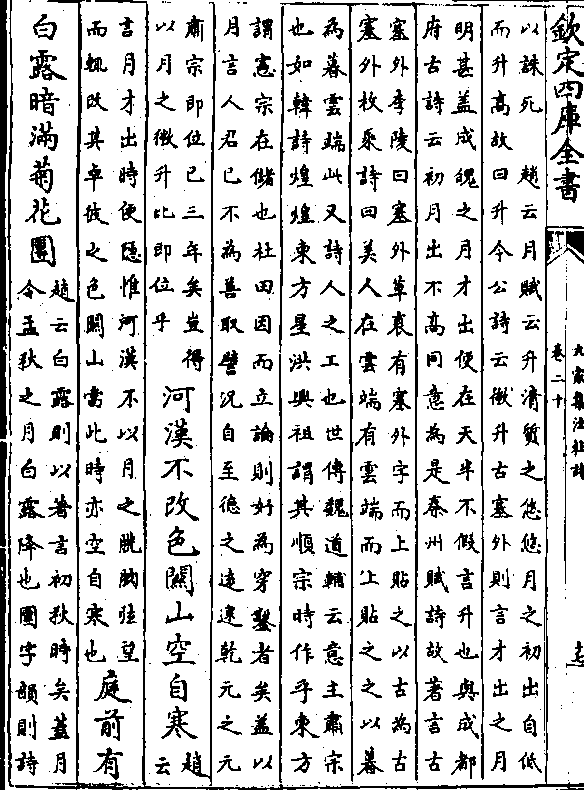 欽定四庫全書
九家集注杜詩
卷二十
以誅死　趙云月賦云升清質之悠悠月之初出自低
而升高故曰升今公詩云微升古塞外則言才出之月
明甚盖成魄之月才出便在天半不假言升也與成都
府古詩云初月出不高同意為是秦州賦詩故著言古
塞外李陵曰塞外草衰有塞外字而上貼之以古為古
塞外枚乘詩曰美人在雲端有雲端而上貼之之以暮
為暮雲端此又詩人之工也世傳魏道輔云意主肅宗
也如韓詩煌煌東方星洪興祖謂其順宗時作乎東方
謂憲宗在儲也杜田因而立論則好為穿鑿者矣盖以
月言人君已不為善取譬況自至德之遠逮乾元之元
肅宗即位已三年矣豈得
以月之微升比即位乎
河漢不改色關山空自寒
趙云
言月才出時便隱惟河漢不以月之朓朒弦望
而輒改其卓彼之色關山當此時亦空自寒也
庭前有
白露暗滿菊花團
趙云白露則以著言初秋時矣蓋月
令孟秋之月白露降也團字韻則詩